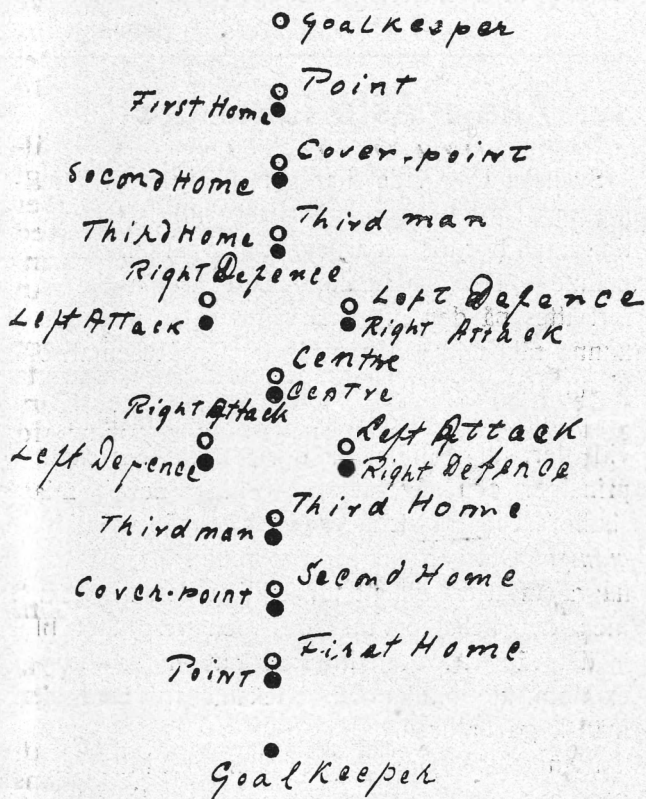 Goalkeeper
Point
First Home
Cover-point
Second Home
Third man
Third Home
Right Defence
Left Defence
Left Attack
Right Attack
Centre
Centre
Right Attack
Left Attack
Left Defence
Right Defence
Third Home
Third man
Second Home
Cover-point
First Home
Point
Goalkeeper